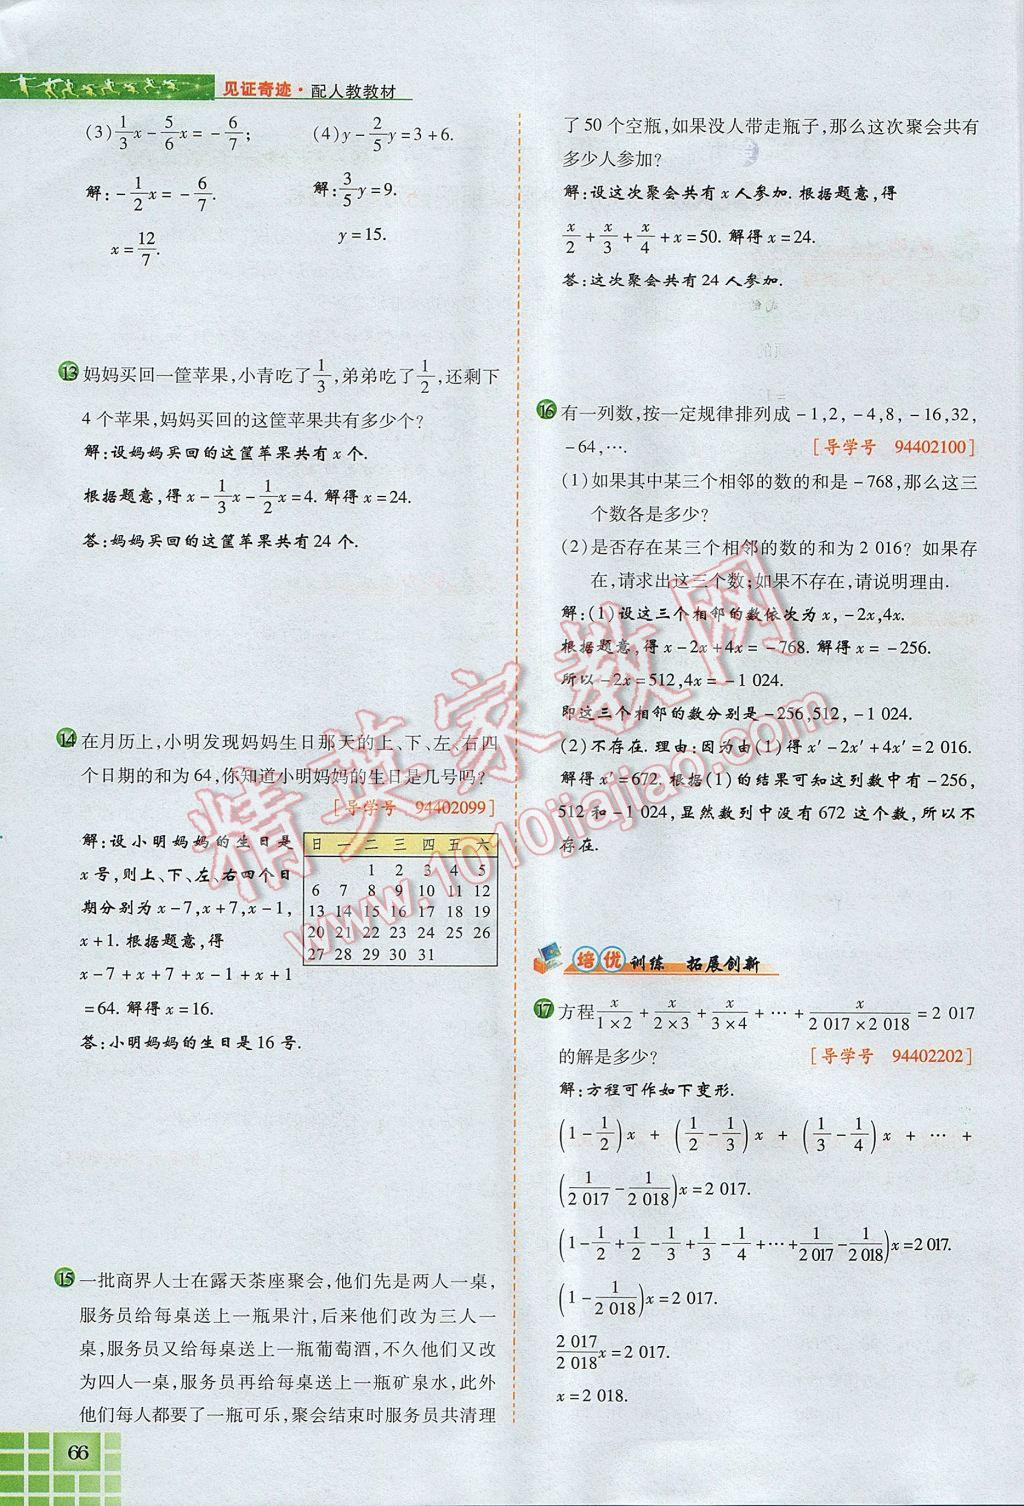 见证奇迹·配人教教材
(3) 1/3x-5/6x=-6/7;　(4) y-2/5y=3+6.
解:-1/2x=-6/7.　解:3/5y=9.
x=12/7.　y=15.
13 妈妈买回一筐苹果,小青吃了1/3,弟弟吃了1/2,还剩下
4个苹果,妈妈买回的这筐苹果共有多少个?
解:设妈妈买回的这筐苹果共有x个.
根据题意,得x-1/3x-1/2x=4. 解得x=24.
答:妈妈买回的这筐苹果共有24个.
14 在月历上,小明发现妈妈生日那天的上、下、左、右四
个日期的和为64,你知道小明妈妈的生日是几号吗?
[导学号 94402099]
解:设小明妈妈的生日是
x号,则上、下、左、右四个日
期分别为x-7,x+7,x-1,
x+1. 根据题意,得
x-7+x+7+x-1+x+1
=64. 解得x=16.
答:小明妈妈的生日是16号.
日 一 二 三 四 五 六
1 2 3 4 5
6 7 8 9 10 11 12
13 14 15 16 17 18 19
20 21 22 23 24 25 26
27 28 29 30 31
15 一批商界人士在露天茶座聚会,他们先是两人一桌,
服务员给每桌送上一瓶果汁,后来他们改为三人一
桌,服务员又给每桌送上一瓶葡萄酒,不久他们又改
为四人一桌,服务员再给每桌送上一瓶矿泉水,此外
他们每人都要了一瓶可乐,聚会结束时服务员共清理
66
了50个空瓶,如果没人带走瓶子,那么这次聚会共有
多少人参加?
解:设这次聚会共有x人参加. 根据题意,得
x/2+x/3+x/4+x=50. 解得x=24.
答:这次聚会共有24人参加.
16 有一列数,按一定规律排列成-1,2,-4,8,-16,32,
-64,…. [导学号 94402100]
(1)如果其中某三个相邻的数的和是-768,那么这三
个数各是多少?
(2)是否存在某三个相邻的数的和为2 016? 如果存
在,请求出这三个数;如果不存在,请说明理由.
解:(1)设这三个相邻的数依次为x,-2x,4x.
根据题意,得x-2x+4x=-768. 解得x=-256.
所以-2x=512,4x=-1 024.
即这三个相邻的数分别是-256,512,-1 024.
(2)不存在. 理由:因为由(1)得x′-2x′+4x′=2 016.
解得x′=672. 根据(1)的结果可知这列数中有-256,
512和-1 024,显然数列中没有672这个数,所以不
存在.
培优训练 拓展创新
17 方程x/(1×2)+x/(2×3)+x/(3×4)+…+x/(2 017×2 018)=2 017
的解是多少? [导学号 94402202]
解:方程可作如下变形.
(1-1/2)x+(1/2-1/3)x+(1/3-1/4)x+…+
(1/2 017-1/2 018)x=2 017.
(1-1/2+1/2-1/3+1/3-1/4+…+1/2 017-1/2 018)x=2 017.
(1-1/2 018)x=2 017.
2 017/2 018x=2 017.
x=2 018.
精英家教网
www.1010jiajiao.com